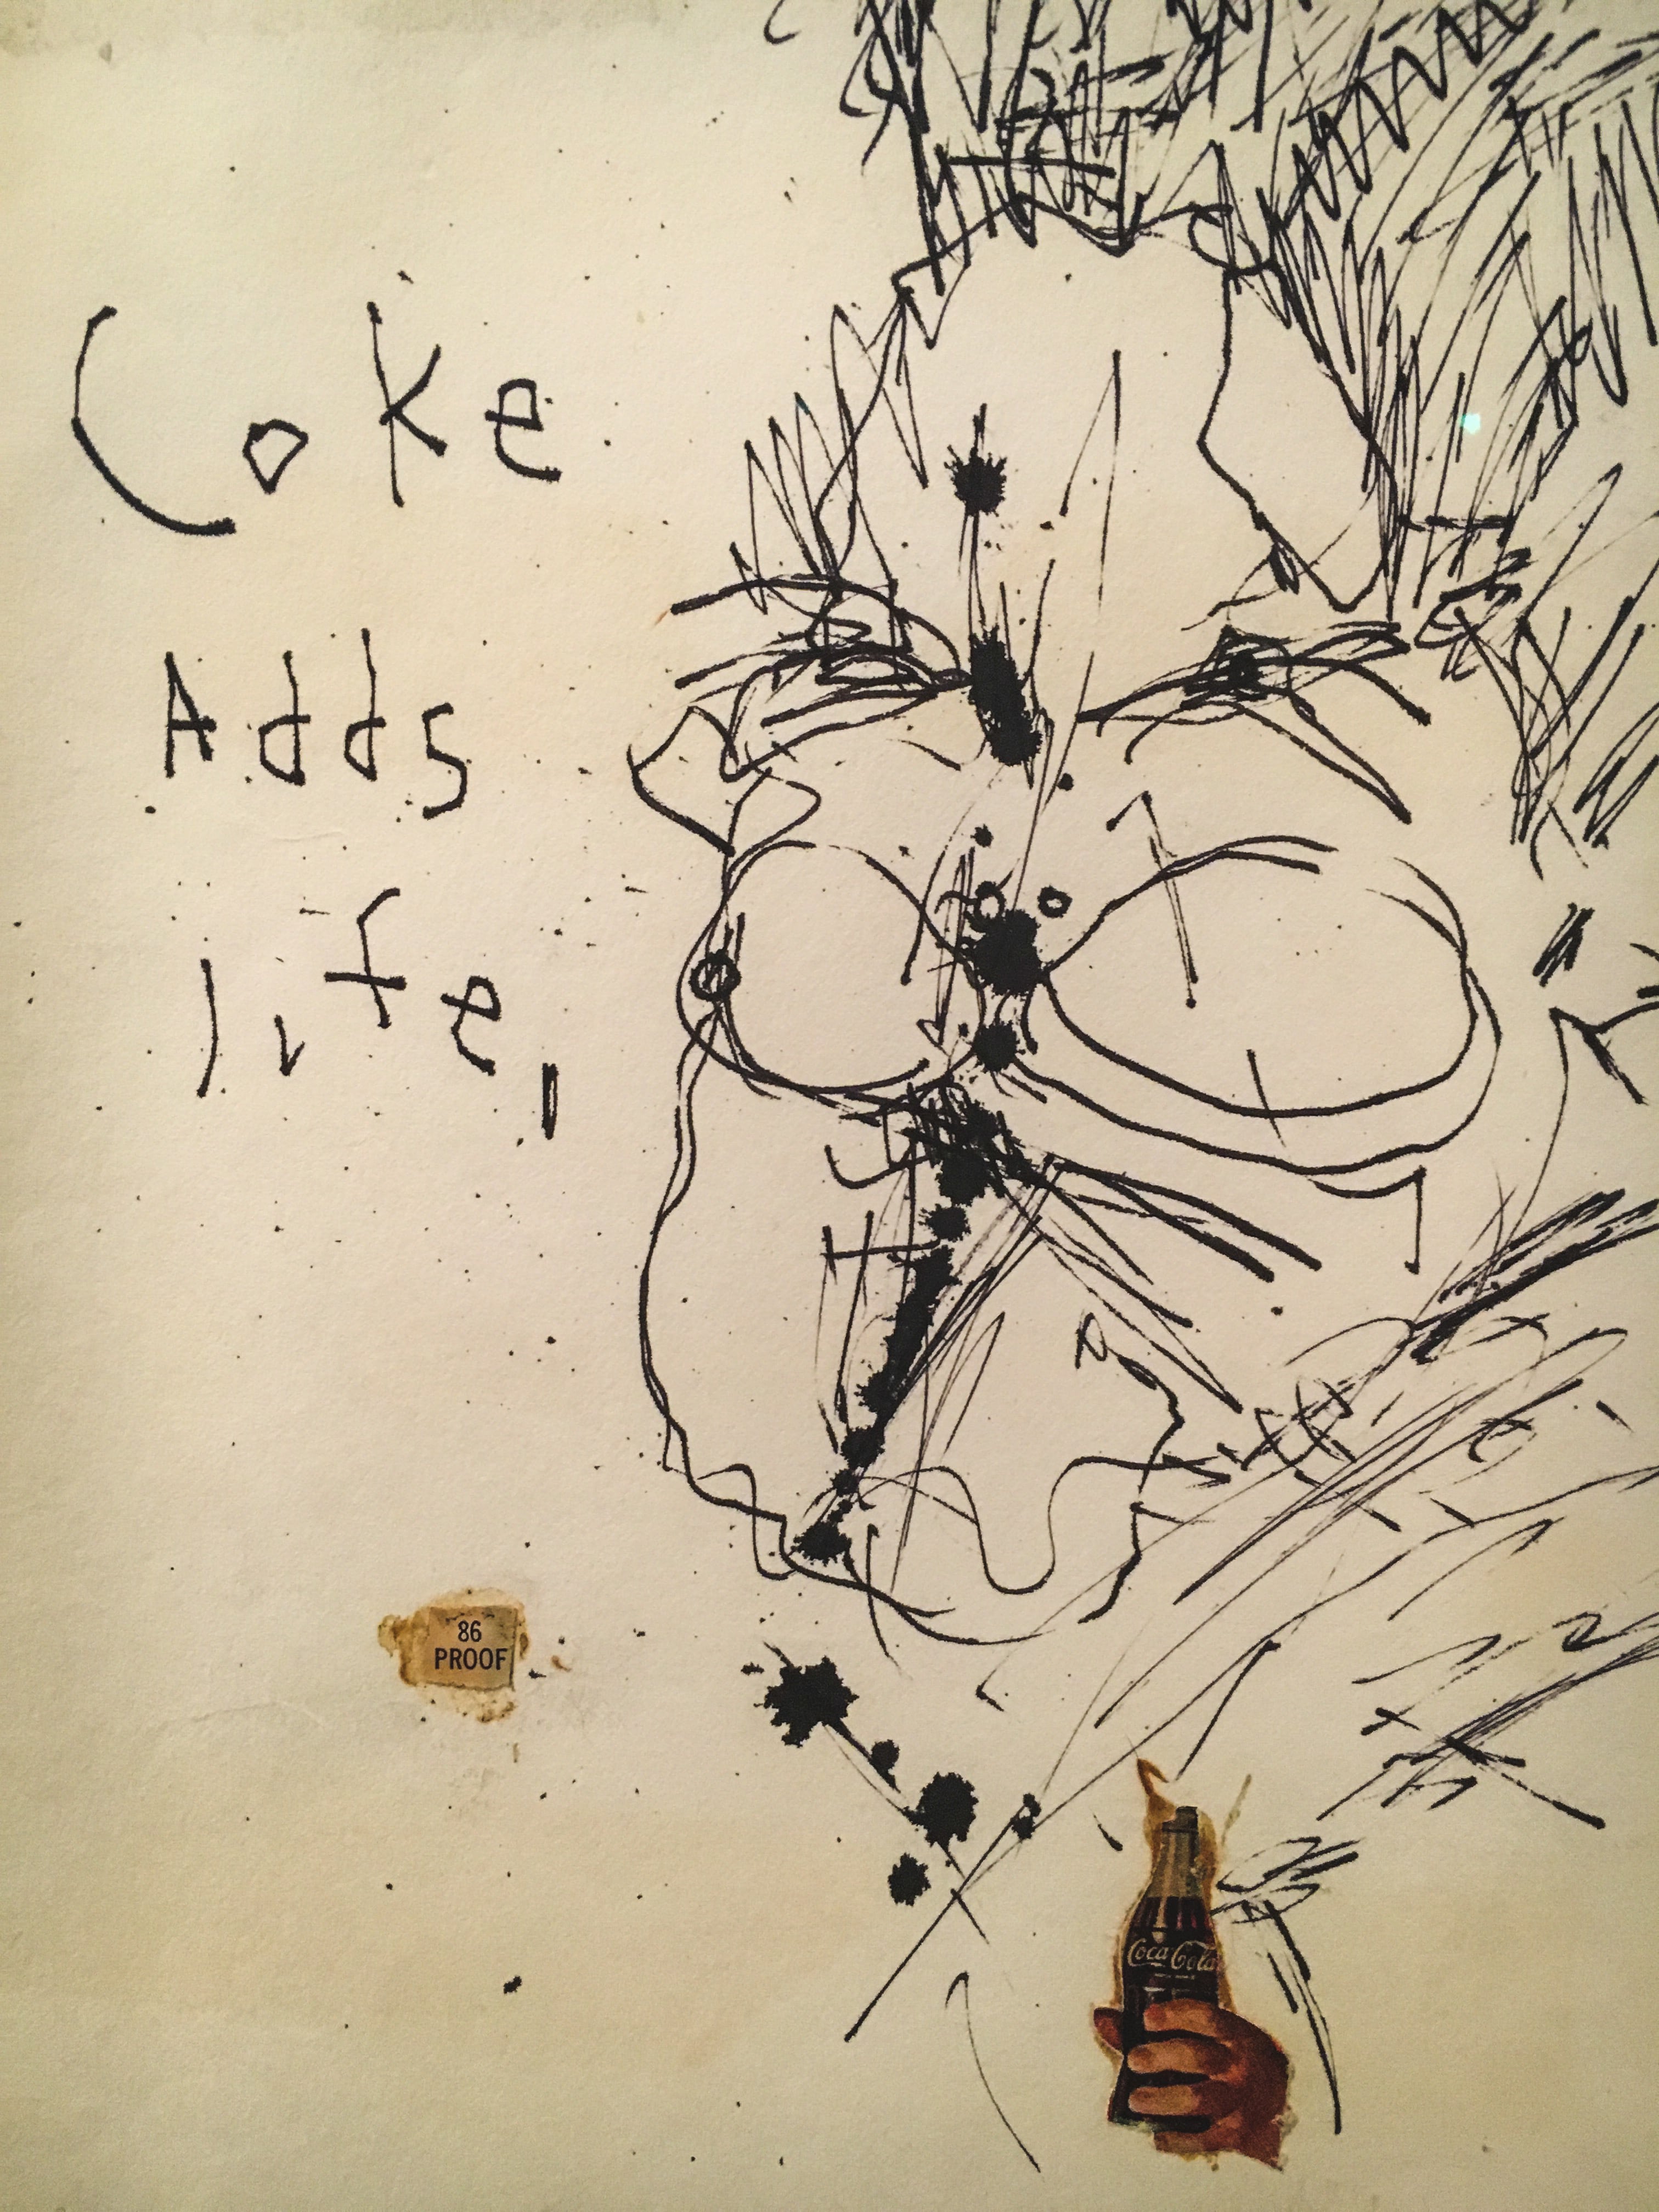 Coke
Adds
life
86
PROOF
Coca-Cola